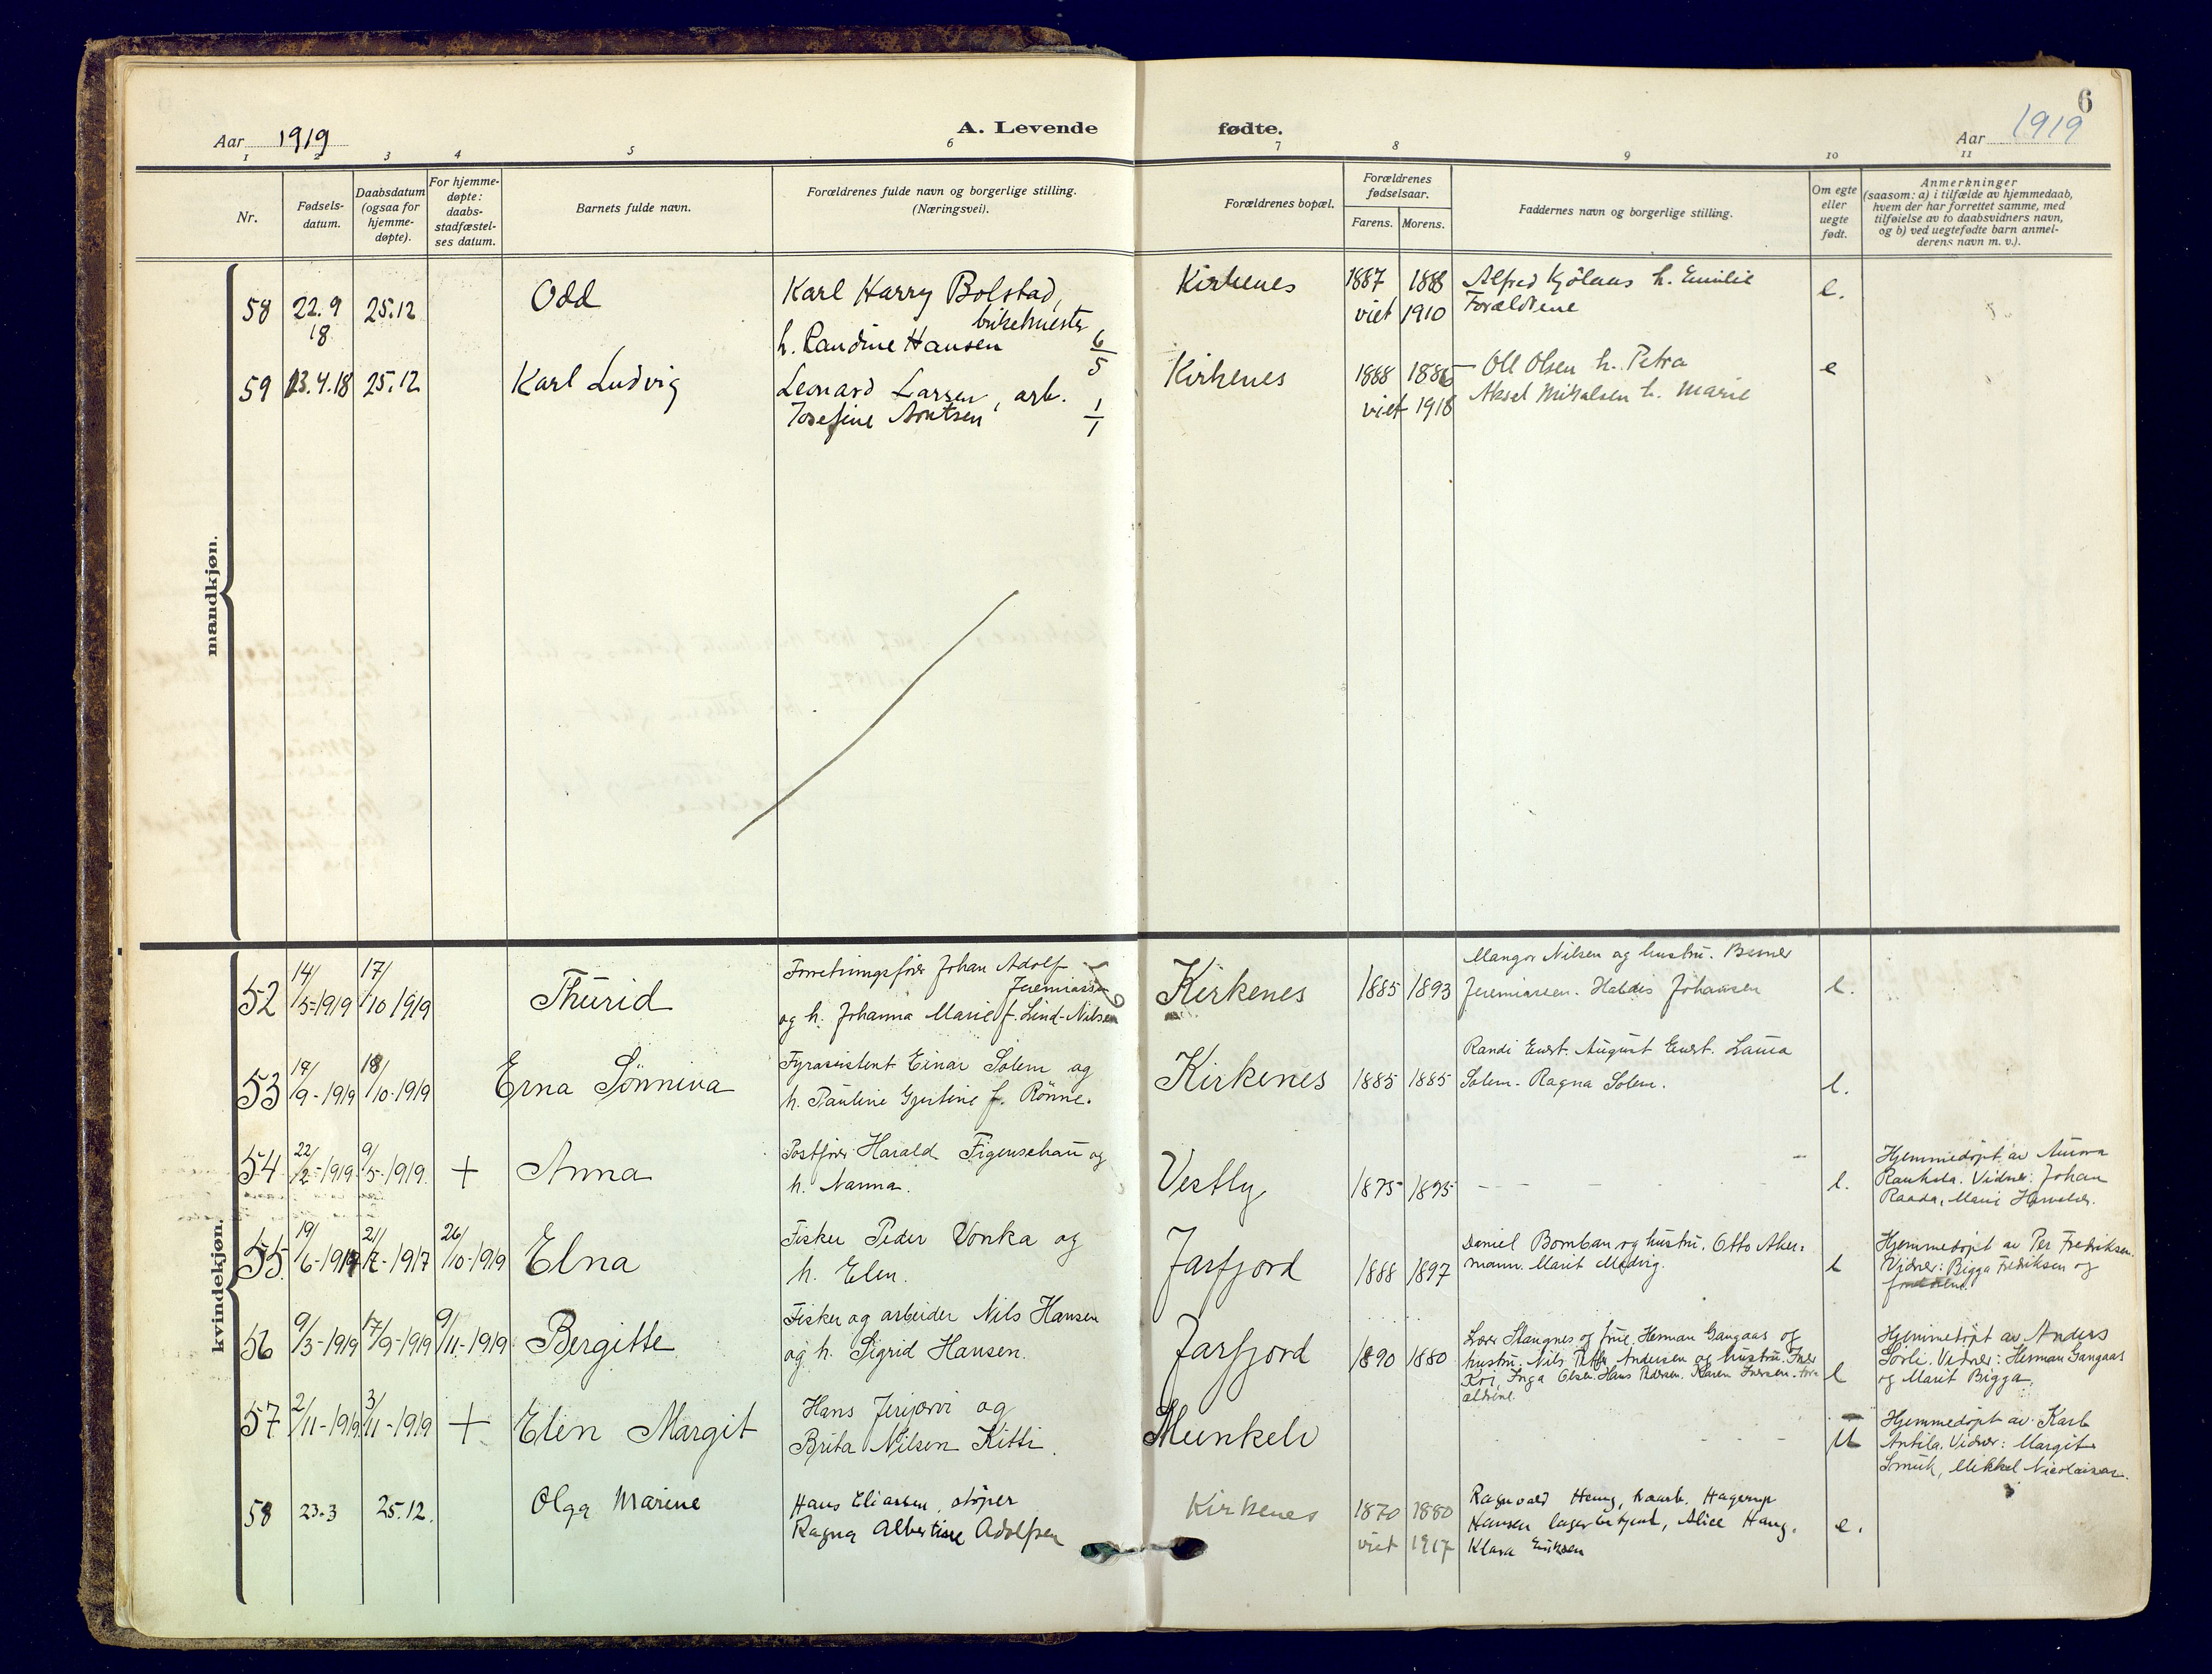 Aar 1919
A. Levende fødte.
6
Aar 1919
1 2 3 4 5 6 7 8 9 10 11
Nr.
Fødsels-
datum.
Daabsdatum
(ogsaa for
hjemme-
døpte).
For hjemme-
døpte:
daabs-
stadfæstel-
ses datum.
Barnets fulde navn.
Forældrenes fulde navn og borgerlige stilling.
(Næringsvei).
Forældrenes bopæl.
Forældrenes
fødselsaar.
Farens. Morens.
Faddernes navn og borgerlige stilling.
Om egte
eller
uegte
født.
Anmerkninger
(saasom: a) i tilfælde av hjemmedaab,
hvem der har forrettet samme, med
tilføielse av to daabsvidners navn,
og b) ved uegtefødte barn anmel-
derens navn m. v.).
mandkjøn.
58 22.9 25.12 Odd Karl Harry Bolstad, Kirkenes 1887 1888 Alfred Kjølaas h. Emilie e.
18 h. Randine Hansen 6/5 viet 1910 Forældrene
59 13.4.18 25.12 Karl Ludvig Leonard Larsen, arb. 1/1 Kirkenes 1888 1886 Oll Olsen h. Petra e
Josefine Arntsen viet 1918 Aksel Mikalsen h. Marie
kvindekjøn.
52 14/5-1919 17/10 1919 Thurid Forretningsfører Johan Adolf Jeremiassen Kirkenes 1885 1893 Mangor Nilsen og hustru. Berner e.
og h. Johanna Marie f. Lind-Nilsen Jeremiassen. Haldis Johansen
53 19/9-1919 18/10-1919 Erna Sønneva Fyrassistent Einar Solem og Kirkenes 1885 1885 Randi Enst. August Enst. Laura e.
h. Pauline Gjertine f. Rønne. Solem - Ragna Solem.
54 22/2-1919 9/5-1919 + Anna Postfører Harald Figenschau og Vestly 1875 1895 - - - e. Hjemmedøpt av Aurora
h. Nanna. Raukola. Vidner: Johan
Raada, Marie
55. 19/6-1917 21/7-1917 26/10-1919 Elna Fisker Peder Vonka og Jarfjord 1888 1897 Daniel Bomban og hustru. Otto Aker- e Hjemmedøpt av Per Fredriksen.
h. Elen. mann. Marit Madvig. Vidner: Bigga Fredriksen og
forældrene.
56 9/3-1919 17/9-1919 9/11-1919 Bergitte Fisker og arbeider Nils Hansen Jarfjord 1890 1880 Lærer Stangnes og frue. Herman Gangaas og e Hjemmedøpt av Anders
og h. Sigrid Hansen. hustru. Nils Petter Andersen og hustru. Sørli. Vidner: Herman Gangaas
Inga Olsen. Hans Pedersen. Karen Iversen. For- og Marit Bigga.
ældrene
57 2/11-1919 3/11-1919 + Elen Margit Hans Jerijærvi og Munkelv - - - U Hjemmedøpt av Karl
Brita Nilsen Kitti. Antila. Vidner: Margit
Smuk, Mikkel Nicolaisen.
58 23.3 25.12. Olga Marine Hans Eliassen, støper Kirkenes 1870 1880 Ragnvald Haug, Hagerup e.
Ragna Albertine Adolfsen viet 1917 Hansen lagerbetjent, Alice Haug.
Klara Eriksen